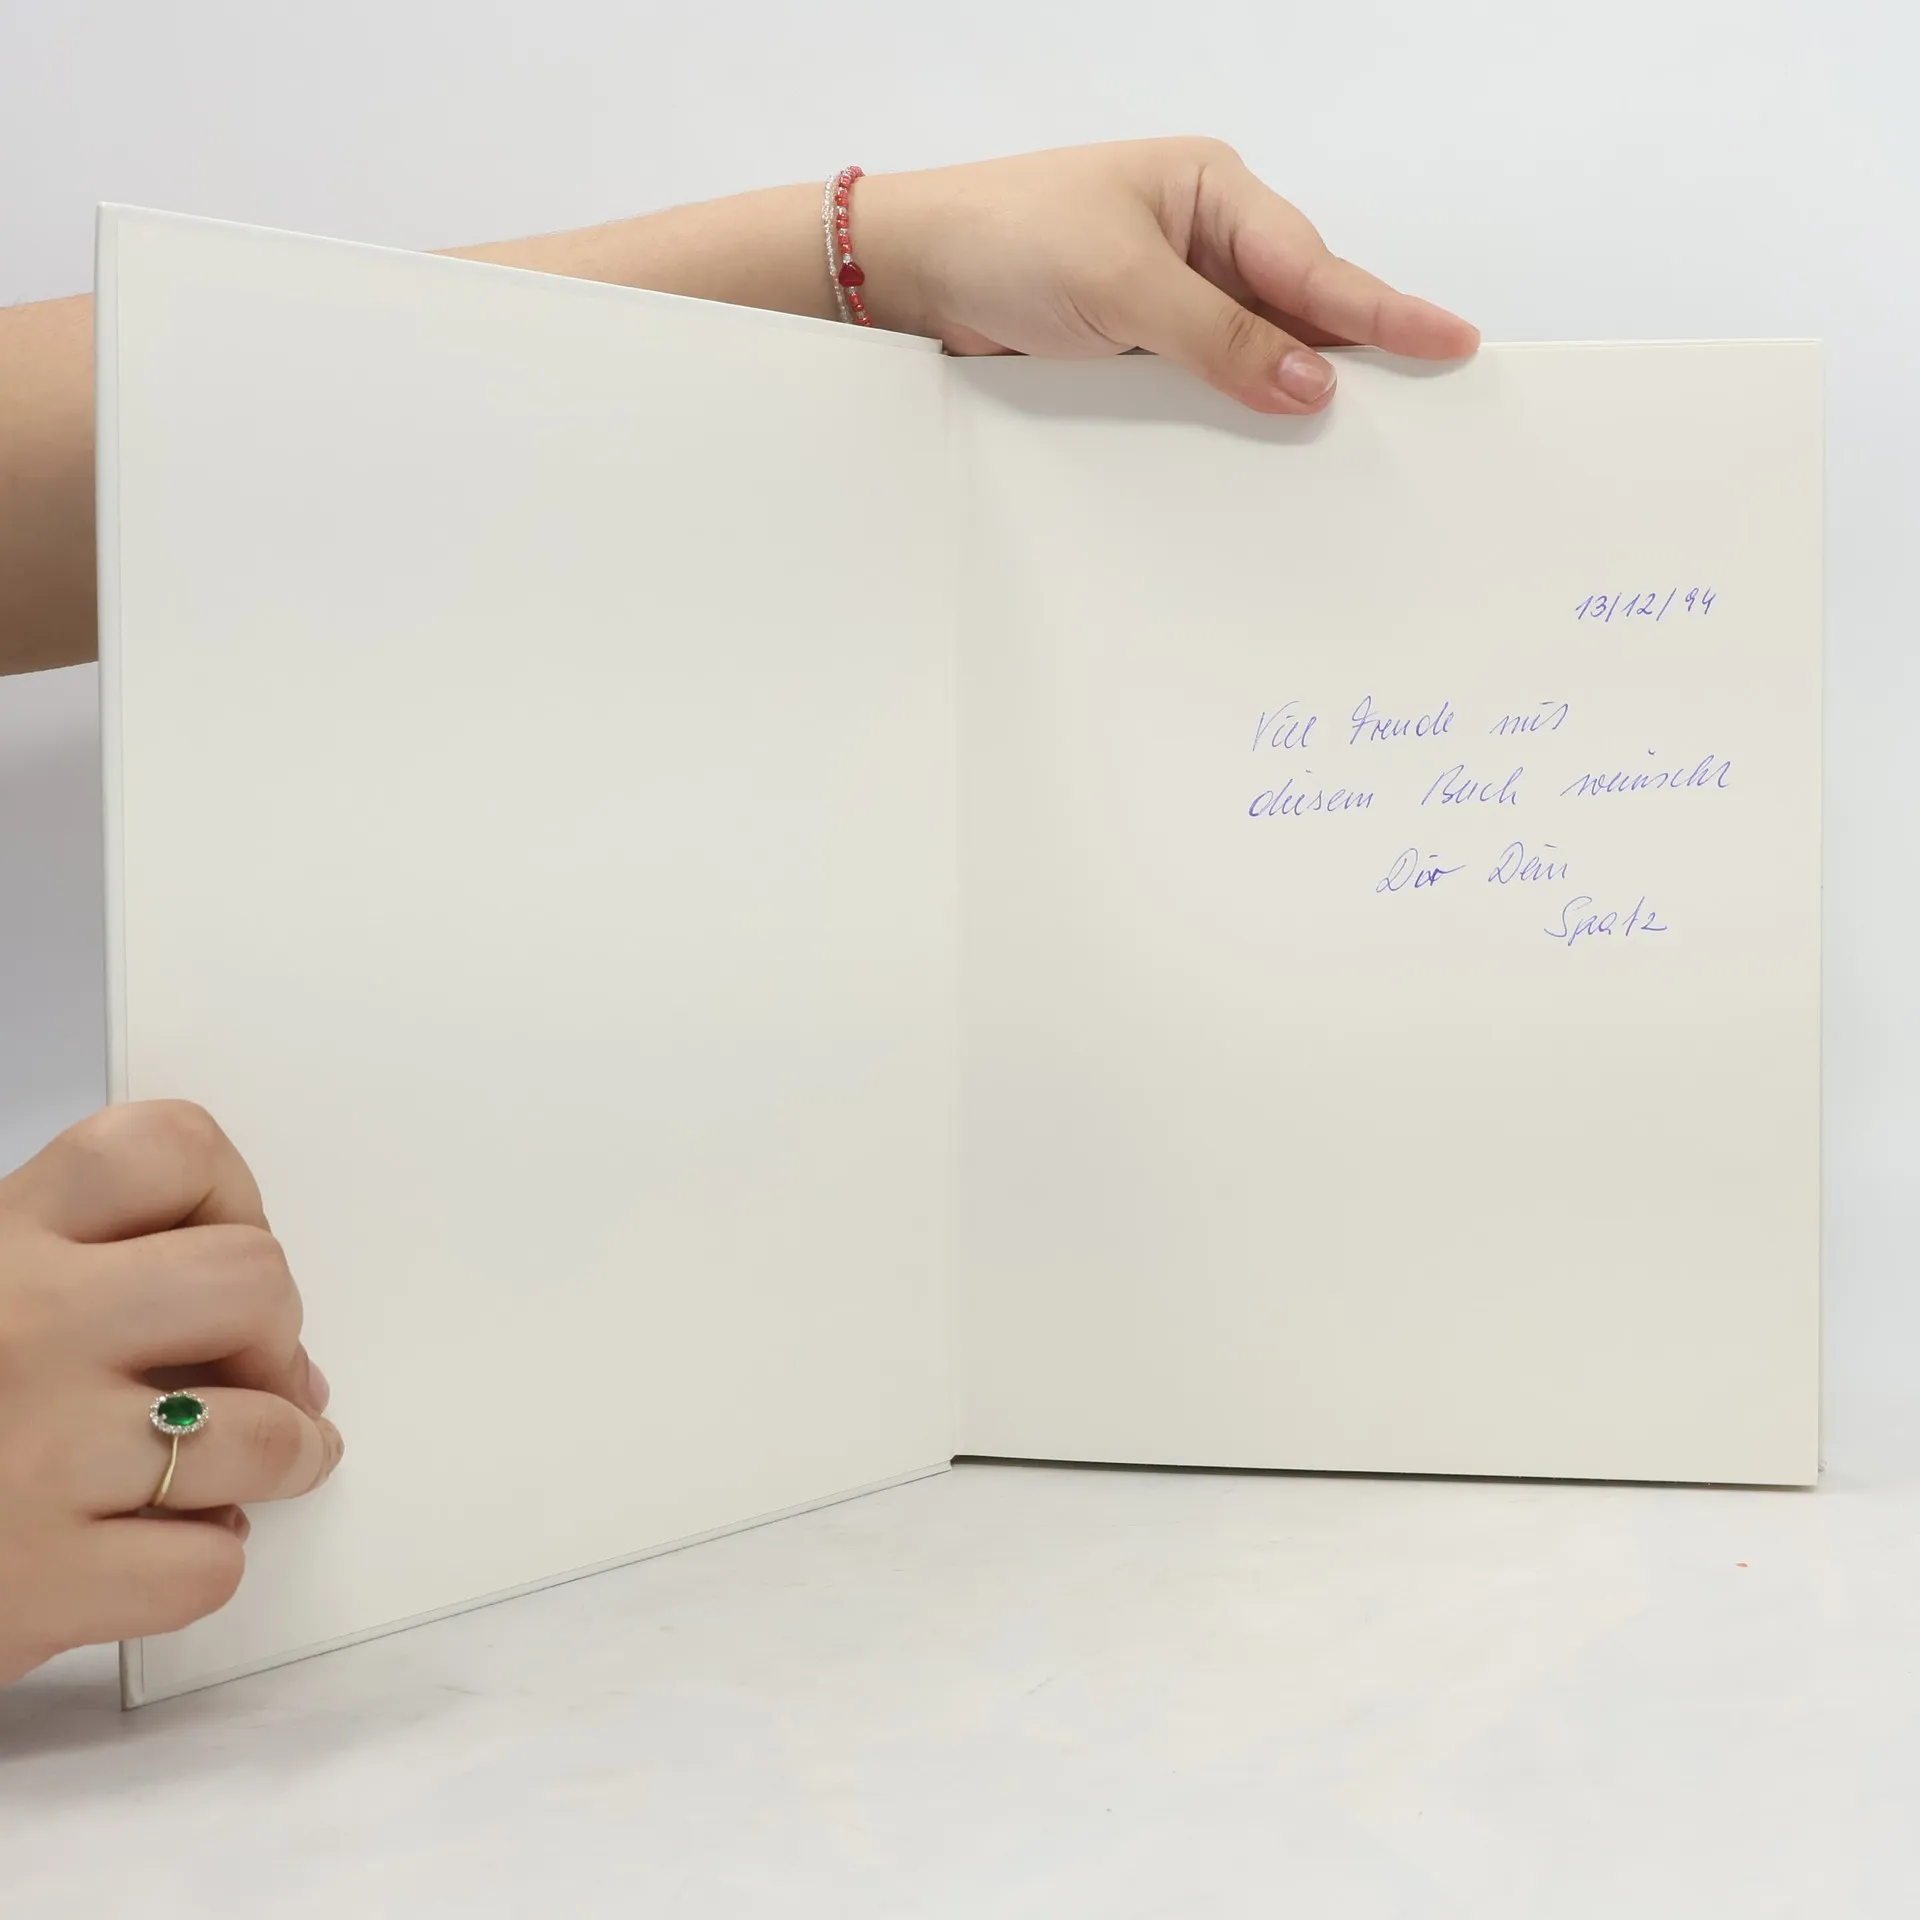 13/12/94
Viel Freude mit
diesem Buch wünscht
Dir Dein
Spatz